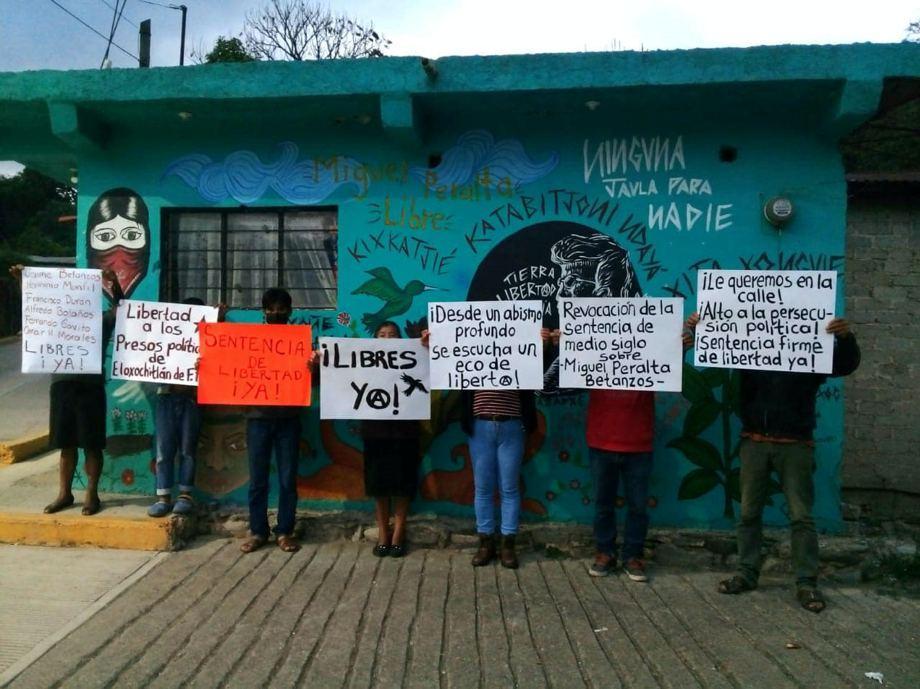 Miguel Peralta
Libre
KIXKATJIÉ
KATABITJONI NDAYA
NINGUNA
JAULA PARA
NADIE
TIERRA
LIBERTAD
Jaime Betanzos
Herminio Monfil
Francisco Durán
Alfredo Bolaños
Fernando Gavito
Omar H. Morales
LIBRES
¡YA!
Libertad
a los
Presos políti
de
Eloxochitlán de F.
SENTENCIA
DE
LIBERTAD
¡YA!
¡LIBRES
YA!
¡Desde un abismo
profundo
se escucha un
eco de
libertA!
Revocación de la
Sentencia de
medio siglo
sobre
-Miguel Peralta
Betanzos-
¡Le queremos en la
calle!
¡Alto a la persecu-
sión política!
¡Sentencia firme
de libertad ya!